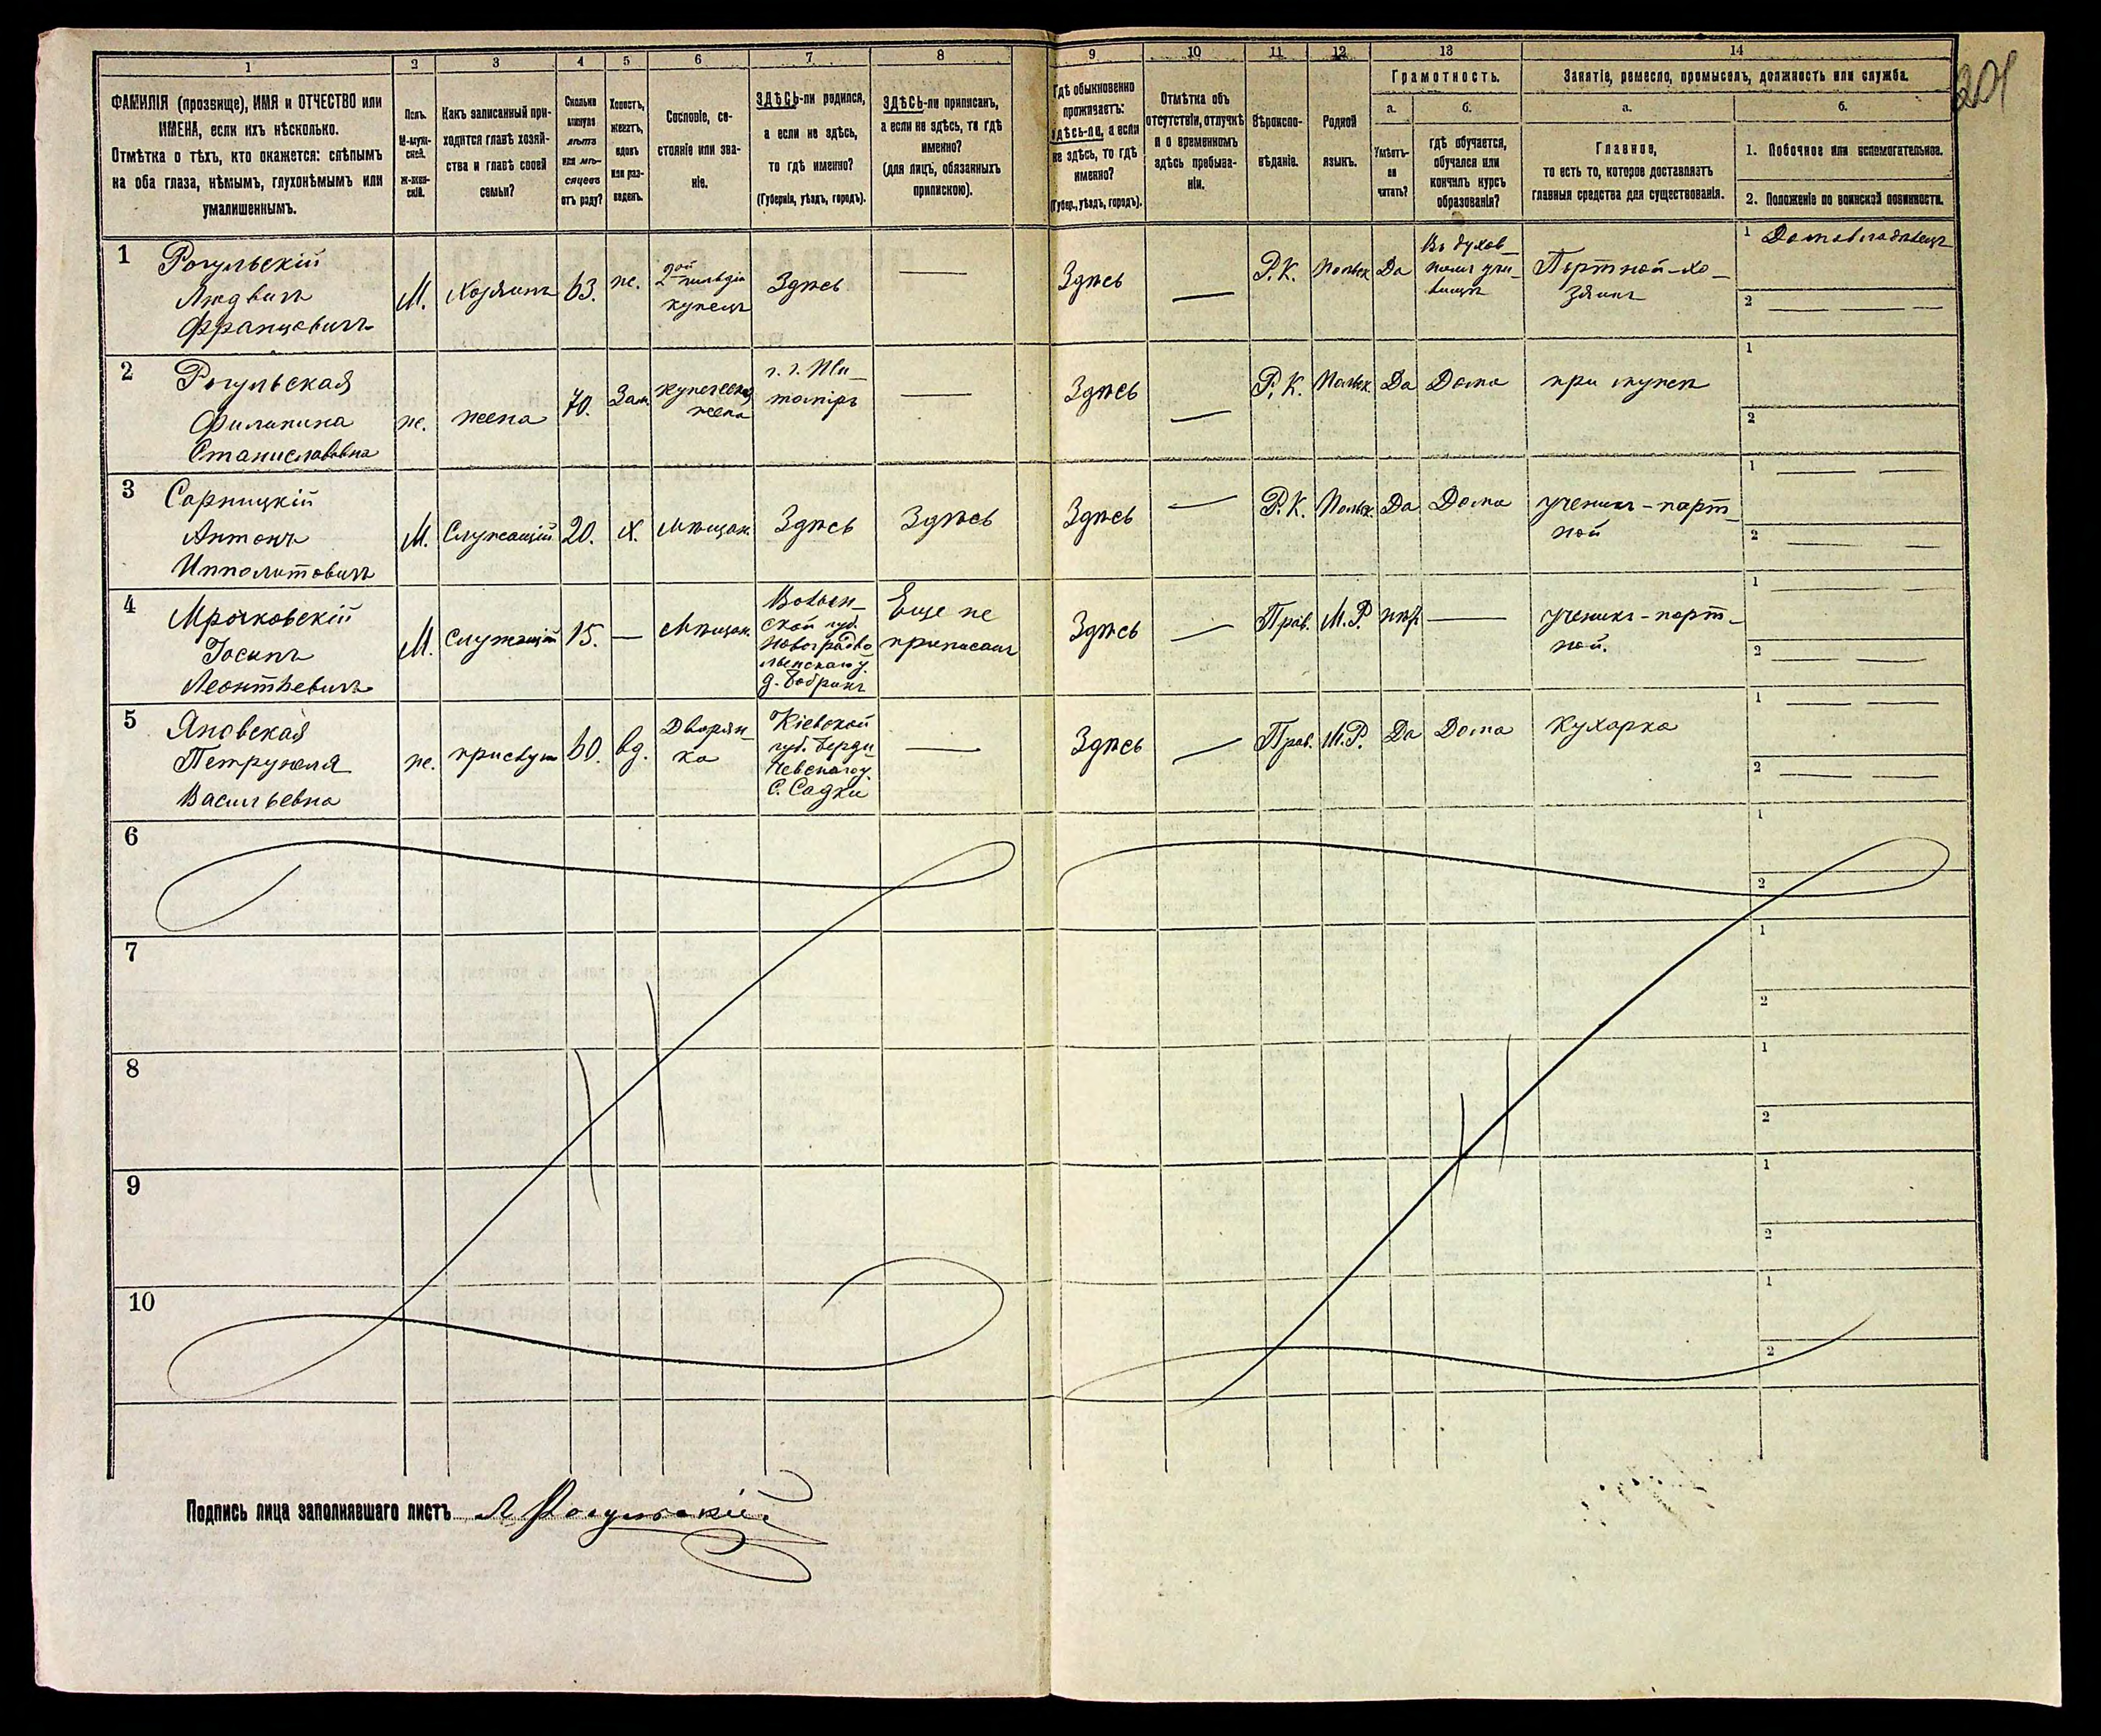 201
1 2 3 4 5 6 7 8 9 10 11 12 13 14
ФАМИЛІЯ (прозвище), ИМЯ и ОТЧЕСТВО или
ИМЕНА, если ихъ нѣсколько.
Отмѣтка о тѣхъ, кто окажется: слѣпымъ
на оба глаза, нѣмымъ, глухонѣмымъ или
умалишеннымъ.
Полъ.
М-муж-
ской.
ж-жен-
скій.
Какъ записанный при-
ходится главѣ хозяй-
ства и главѣ своей
семьи?
Сколько
минуло
лѣтъ
или мѣ-
сяцевъ
отъ роду?
Холостъ,
женатъ,
вдовъ
или раз-
веденъ.
Сословіе, со-
стояніе или зва-
ніе.
ЗДѢСЬ-ли родился,
а если не здѣсь,
то гдѣ именно?
(Губернія, уѣздъ, городъ).
ЗДѢСЬ-ли приписанъ,
а если не здѣсь, то гдѣ
именно?
(для лицъ, обязанныхъ
припискою).
Гдѣ обыкновенно
проживаетъ:
здѣсь-ли, а если
не здѣсь, то гдѣ
именно?
(Губер., уѣздъ, городъ).
Отмѣтка объ
отсутствіи, отлучкѣ
и о временномъ
здѣсь пребыва-
ніи.
Вѣроиспо-
вѣданіе.
Родной
языкъ.
Грамотность.
а.
Умѣетъ-
ли
читать?
б.
гдѣ обучается,
обучался или
кончилъ курсъ
образованія?
Занятіе, ремесло, промыселъ, должность или служба.
а.
Главное,
то есть то, которое доставляетъ
главныя средства для существованія.
б.
1. Побочное или вспомогательное.
2. Положеніе по воинской повинности.
1
Рогульскій
Людвигъ
Францовичъ
М.
Хозяинъ
63.
же.
2ой гильдіи
купецъ
Здѣсь
—
Здѣсь
—
Р.К.
Польск
Да
Въ духов-
номъ учи-
лищѣ
Портной-хо-
зяинъ
1 Домовладѣлецъ
2 — — —
2
Рогульская
Филипина
Станиславовна
же.
жена
70.
Зам.
купеческая
жена
—
Здѣсь
—
Р.К.
Польск
Да
Дома
при мужѣ
1
2
3
Сарницкій
Антонъ
Ипполитовичъ
М.
Служащій
20.
Х.
Мѣщан.
Здѣсь
Здѣсь
Здѣсь
—
Р.К.
Польск.
Да
Дома
ученикъ-порт-
ной
1 — —
2 — —
4
Мрочковскій
Іосипъ
Леонтьевичъ
М.
Служащій
15.
—
Мѣщан.
Волын-
ской губ.
Новоградво-
лынскаго у.
д. Бобрикъ
Еще не
приписанъ
Здѣсь
—
Прав.
М.Р.
нѣтъ
—
ученикъ-порт-
ной.
1 — —
2 — —
5
Яновская
Петрунеля
Васильевна
же.
прислуга
60.
вд.
Дворян-
ка
Кіевской
губ. Берди-
чевскаго у.
С. Садки
—
Здѣсь
—
Прав.
М.Р.
Да
Дома
Кухарка
1 — —
2 — —
6
1
2
7
1
2
8
1
2
9
1
2
10
1
2
Подпись лица заполнявшаго листъ Л Рогульскій